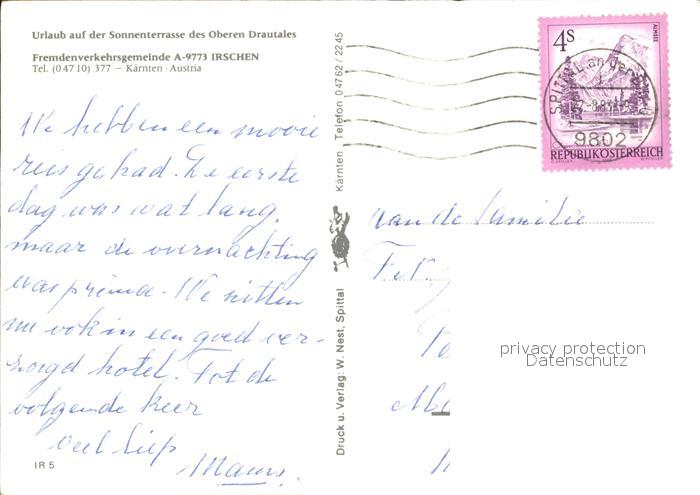 Urlaub auf der Sonnenterrasse des Oberen Drautales
Fremdenverkehrsgemeinde A-9773 IRSCHEN
Tel. (0 47 10) 377 – Kärnten · Austria
We hebben een mooie
reis gehad. De eerste
dag was wat lang,
maar de overnachting
was prima. We zitten
nu ook in een goed ver-
zorgd hotel. Tot de
volgende keer
veel liefs
IR 5
Druck u. Verlag: W. Nest, Spittal
Kärnten Telefon 0 47 62 / 22 45
4S
ALMSEE
REPUBLIK ÖSTERREICH
SPITTAL an der
9802
aan de Familie
privacy protection
Datenschutz